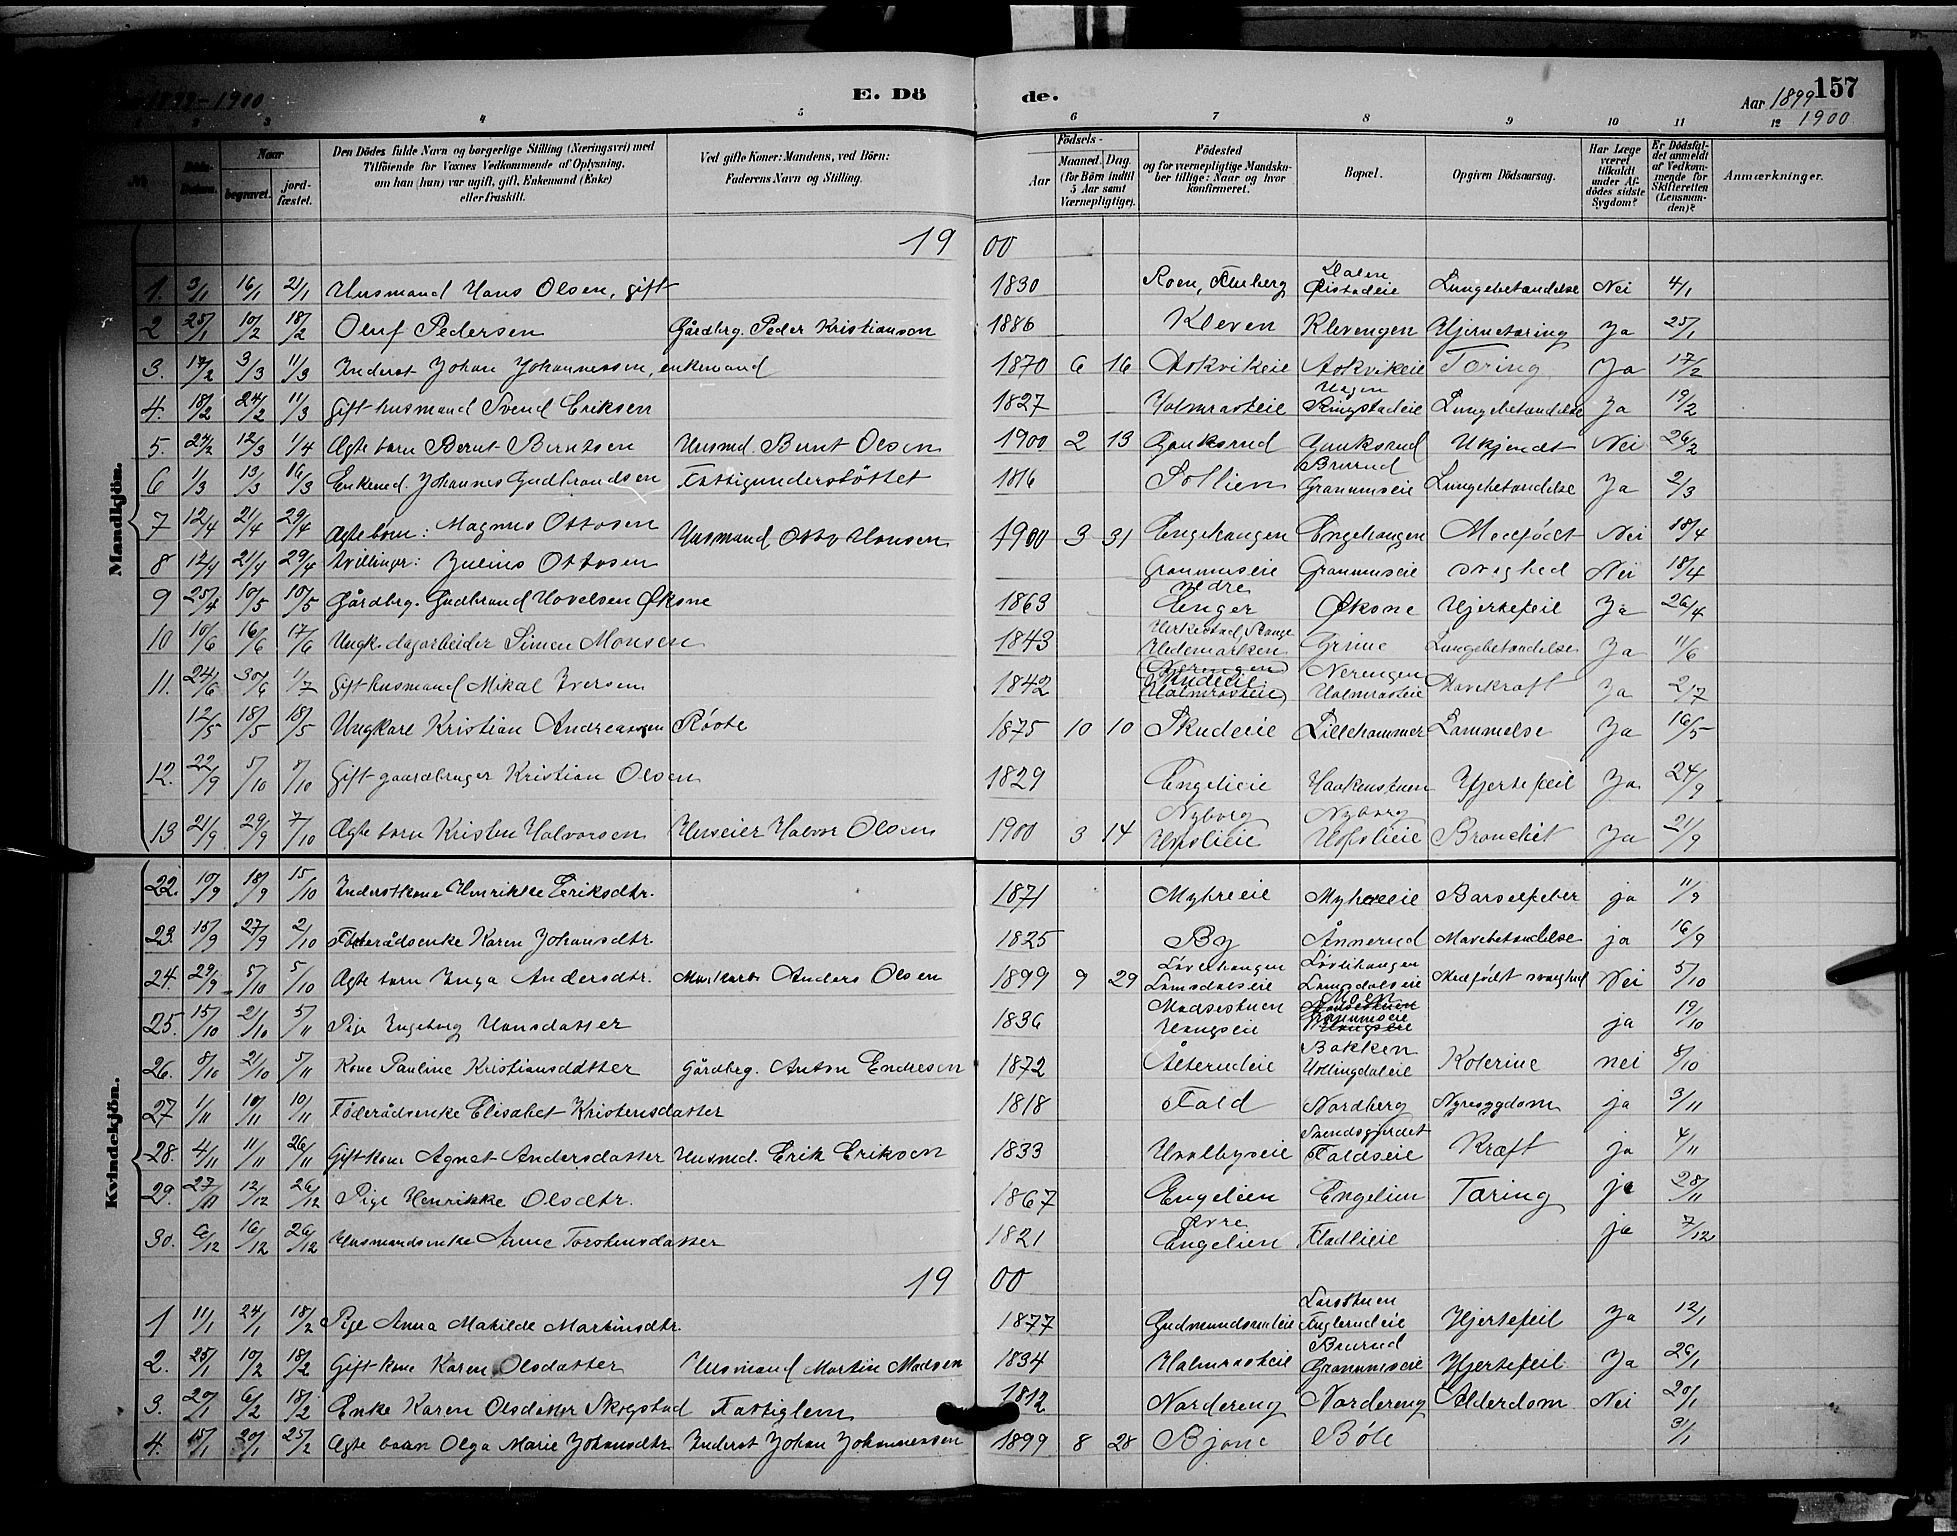 1899-1900
E. Dö de.
Aar 1899 157
1900
2 3 4 5 6 7 8 9 10 11 12
Naar
begravet. jordfæstet.
Den Dödes fulde Navn og borgerlige Stilling (Næringsvei) med
Tilföiende for Voxnes Vedkommende af Oplysning,
om han (hun) var ugift, gift, Enkemand (Enke)
eller fraskilt.
Ved gifte Koner: Mandens, ved Börn:
Faderens Navn og Stilling.
Födsels-
Aar
Maaned. Dag.
(for Börn indtil
5 Aar samt
Værnepligtige).
Födested
og for værnepligtige Mandska-
ber tillige: Naar og hvor
konfirmeret.
Bopæl.
Opgiven Dödsaarsag.
Har Læge
været
tilkaldt
under Af-
dödes sidste
Sygdom?
Er Dödsfal-
det anmeldt
af Vedkom-
mende for
Skifteretten
(Lensman-
den)?
Anmærkninger.
Mandkjön.
1900
1. 3/1 16/1 21/1 Husmand Hans Olsen, gift 1830 Roen, Fluberg Dalen Øistadeie Lungebetændelse Nei 4/1
2 25/1 10/2 18/2 Oluf Pedersen Gårdbrg. Peder Kristiansen 1886 Kleven Klevengen Hjernetæring Ja 25/1
3. 17/2 3/3 11/3 Inderst Johan Johannessen, enkemand 1870 6 16 Askvikeie Askvikeie Tæring Ja 17/2
4. 18/2 24/2 11/3 gift husmand Svend Eriksen 1827 Halmrasteie Hagen Ringstadeie Lungebetændelse Ja 19/2
5. 24/2 12/3 1/4 Ægte barn Bernt Berntsen Husmd. Bernt Olsen 1900 2 13 Gauksrud Gauksrud Ukjendt Nei 26/2
6 1/3 13/3 16/3 Enkemd. Johannes Gudbrandsen Fattigunderstøttet 1816 Sollien Brurud Granumseie Lungebetændelse Ja 2/3
7 12/4 21/4 29/4 Ægte børn: Magnus Ottosen Husmand Otto Hansen 1900 3 31 Engehaugen Engehaugen Medfødt Nei 18/4
8 12/4 21/4 29/4 tvillinger: Julius Ottosen Granumseie Granumseie svaghed Nei 18/4
9 25/4 10/5 10/5 Gårdbrg. Gudbrand Hovelsen Øksne 1863 nedre Enger Øksne Hjertefeil Ja 26/4
10 10/6 16/6 17/6 Ungk. dagarbeider Simen Monsen 1843 Stange Hedemarken Grime Lungebetændelse Ja 11/6
11. 24/6 30/6 1/7 gift husmand Mikal Iversen 1842 Nerengen Halmrasteie Nerengen Halmrasteie Mavekræft Ja 2/7
12/5 18/5 18/5 Ungkare Kristian Andreassen Røste 1875 10 10 Skudeie Lillehammer Lammelse Ja 16/5
12. 22/9 5/10 7/10 Gift gaardbruger Kristian Olsen 1829 Engelieie Haakenstuen Hjertefeil Ja 24/9
13 21/9 29/9 7/10 Ægte barn Kristen Halvorsen Huseier Halvor Olsen 1900 3 14 Nyborg Nyborg Bronchit Ja 21/9
Kvindekjön.
22. 10/9 18/9 15/10 Inderstkone Henrikke Eriksdtr. 1871 Myhreeie Myhreeie Barselfeber ja 11/9
23. 15/9 27/9 2/10 Føderådsenke Karen Johansdtr. 1825 By Ånnerud Mavebetændelse ja 16/9
24. 29/9 5/10 5/10 Ægte barn Inga Andersdtr. Anders Olsen 1899 9 29 Løvlihaugen Landsdalseie Løvlihaugen Landsdalseie Medfødt svaghed Nei 5/10
25. 15/10 21/10 5/11 Pige Ingeborg Hansdatter 1836 Madsestuen Haugseie Moen Granumseie ja 19/10
26. 8/10 21/10 5/11 Kone Pauline Kristiansdatter Gårdbrg. Anton Endresen 1872 Ålterudeie Bakken Hollingdaleie Kolerine nei 8/10
27 1/11 10/11 10/11 Føderådsenke Elisabet Kristensdatter 1818 Fald Nordberg Nyresygdom ja 3/11
28. 4/11 11/11 26/11 Gift kone Agnet Andersdatter Husmd. Erik Eriksen 1833 Hvalbyseie Svendsgjerdet Faldseie Kræft ja 4/11
29. 27/11 12/12 26/12 Pige Henrikke Olsdtr. 1867 Engelien Engelien Tæring ja 28/11
30. 6/12 16/12 26/12 Husmandsenke Anne Torstensdatter 1821 øvre Engelien Fladlieie ja 7/12
1900
1 11/1 24/1 18/2 Pige Anna Matilde Martinsdtr. 1877 Gudmundsrudeie Larsstuen Fuglerudeie Hjertefeil Ja 12/1
2. 25/1 10/2 18/2 Gift kone Karen Olsdatter Husmand Martin Madsen 1834 Halmrasteie Brurud Granumseie Hjertefeil Ja 26/1
3. 20/1 6/2 18/2 Enke Karen Olsdatter Skogstad Fattiglem 1812 Nordereng Nordereng Alderdom Nei 20/1
4. 15/1 20/1 25/2 Ægte barn Olga Marie Johansdtr. Inderst Johan Johannessen 1899 8 28 Bjone Bøle 31/1